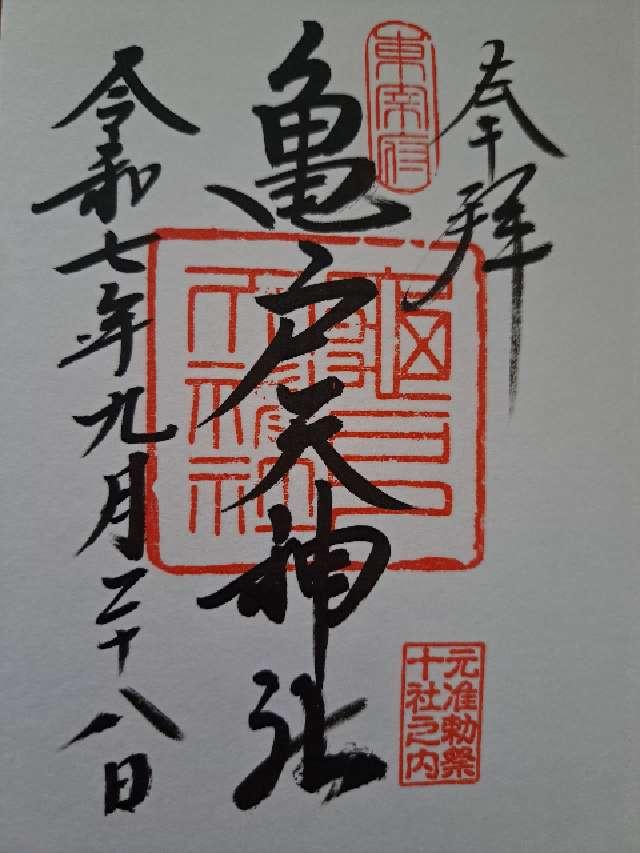 奉拝
東宰府
亀戸天神社
元准勅祭
十社之内
令和七年九月二十八日